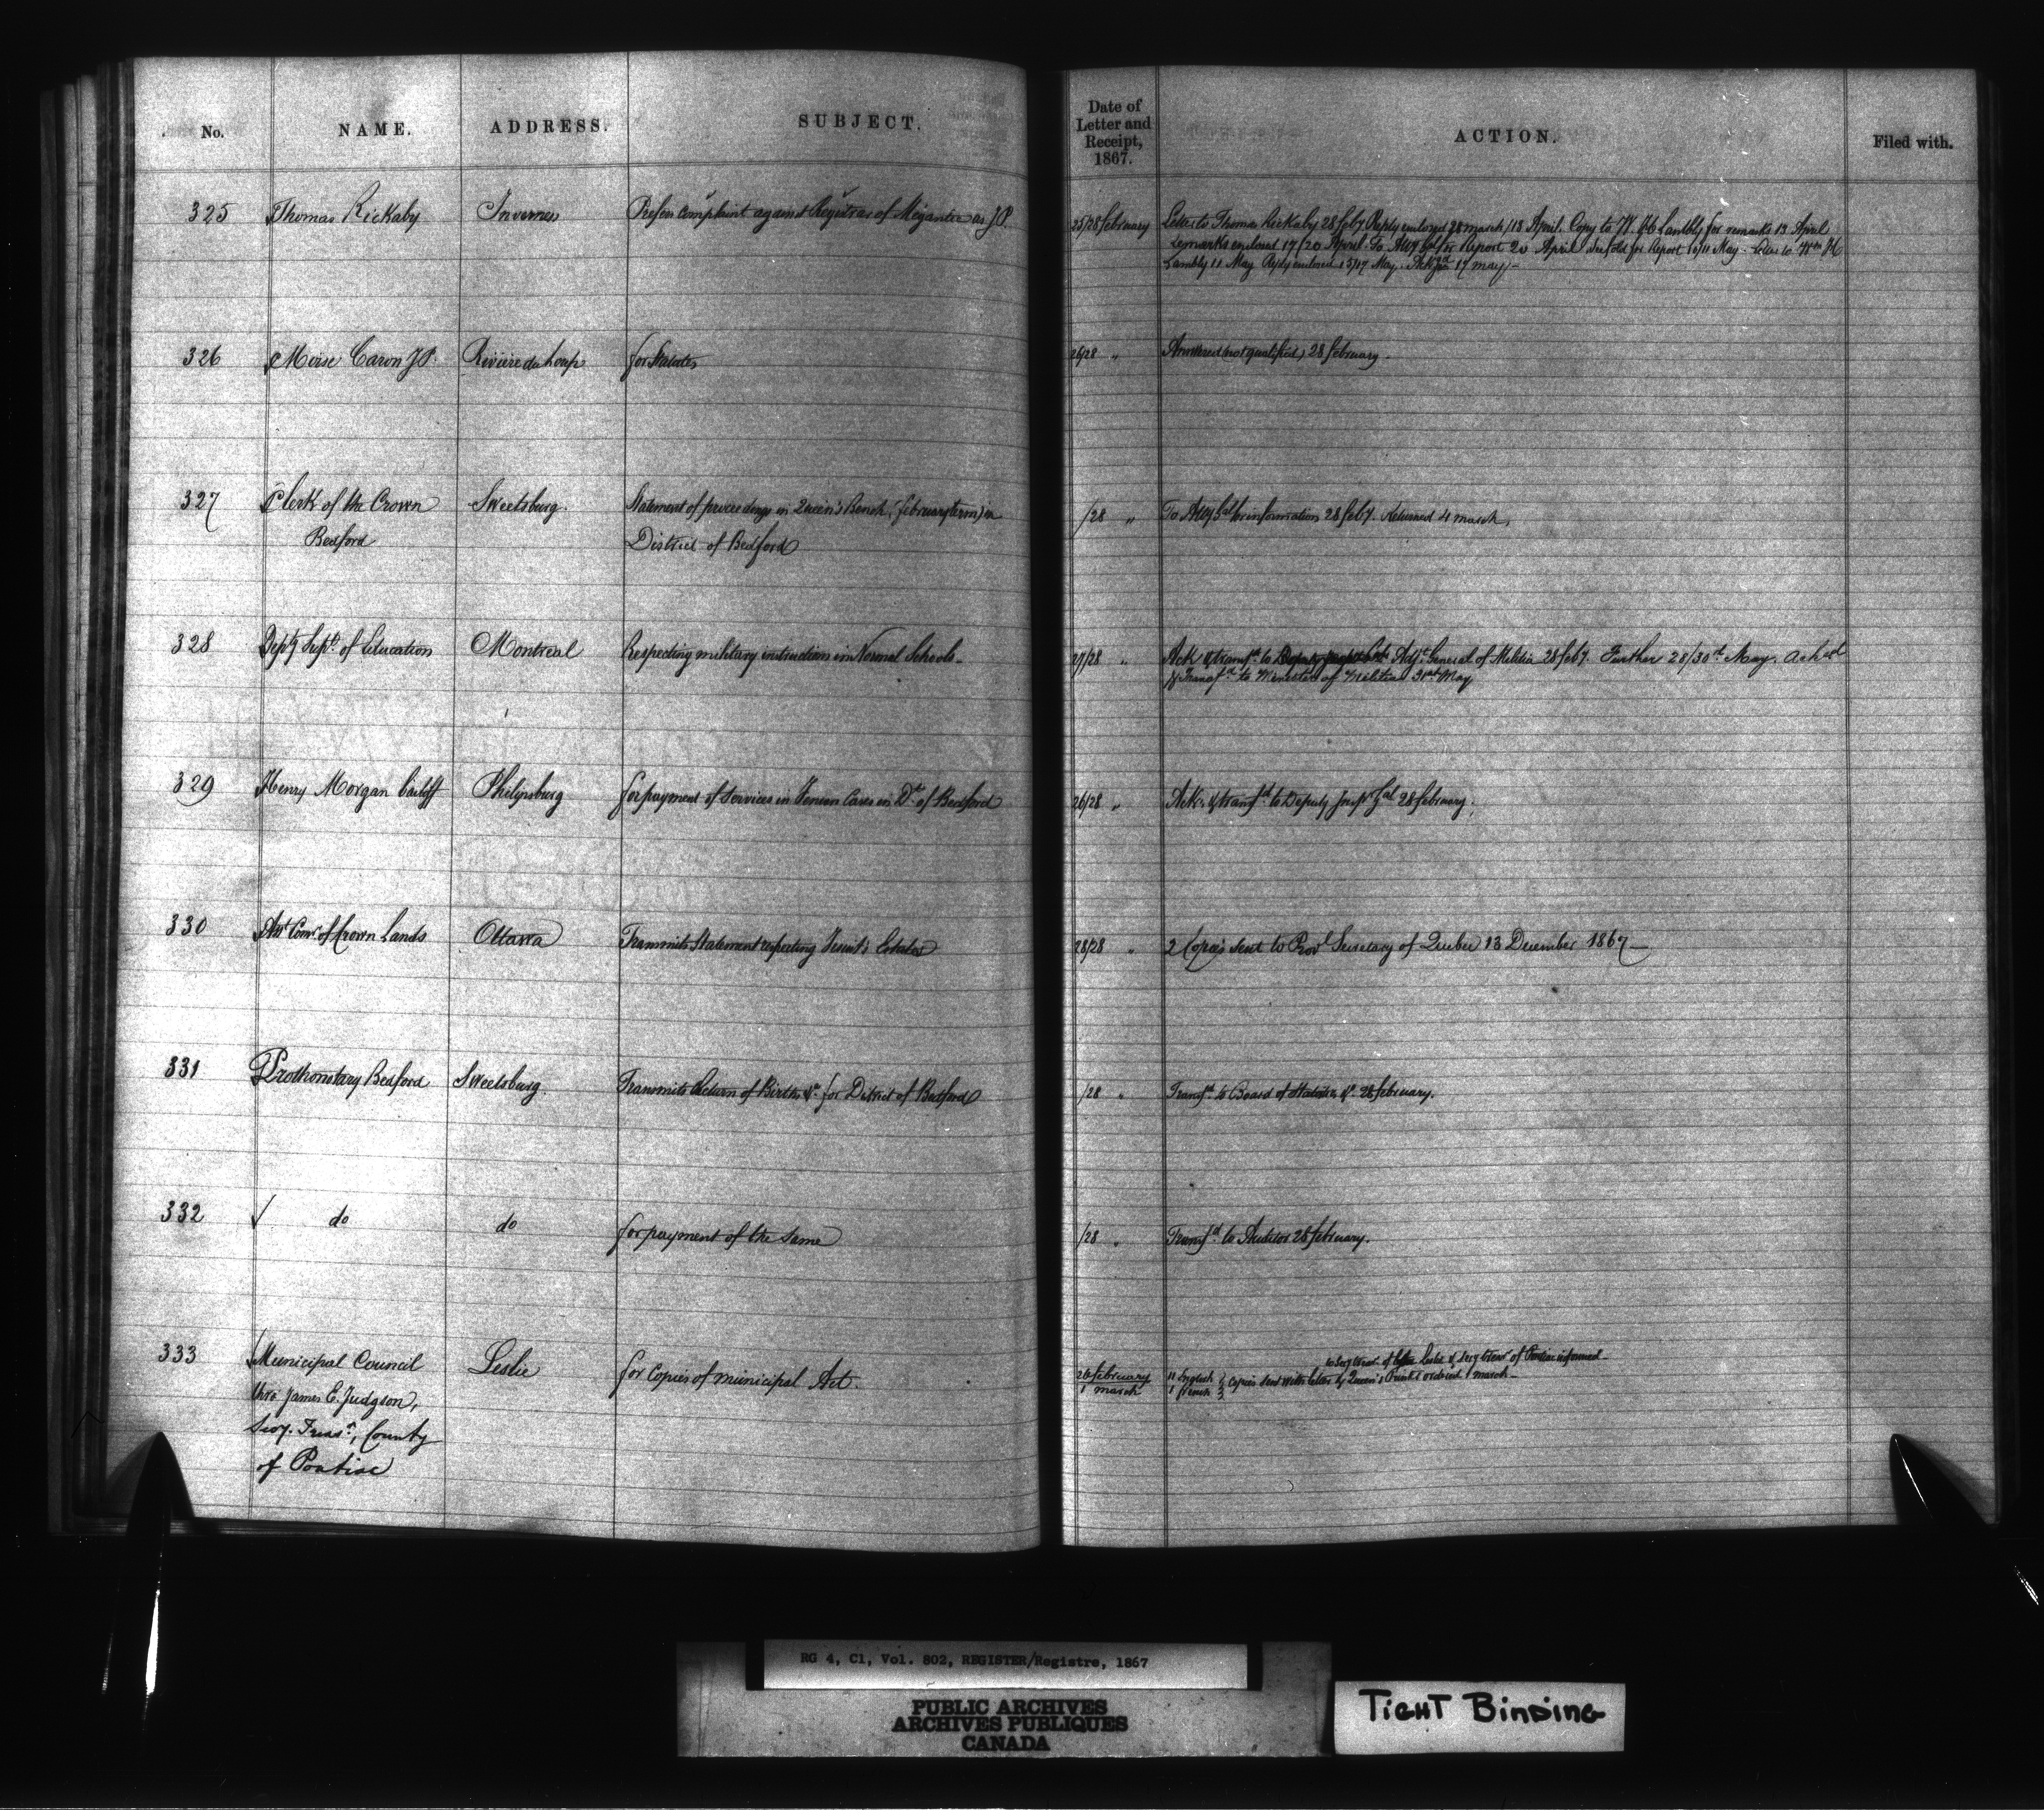 No. NAME. ADDRESS. SUBJECT.
Date of Letter and Receipt, 1867. ACTION. Filed with.
325 Thomas Rickaby Inverness Prefers complaint against Registrar of Megantic as J.P.
25/28 February Letter to Thomas Rickaby 28 feby Reply enclosed 28 march/13 April. Copy to W. H. Lambly for remarks 13 April
remarks enclosed 17/20 April. To Atty Gal for Report 20 April for Report 10/11 May. to Wm H
Lambly 11 May Reply enclosed 15/17 May. Ackgd 17 may) —
326 Moise Caron J.P. Rivière du Loup for Statutes
26/28 " Answered (not qualified) 28 february —
327 Clerk of the Crown Sweetsburg. Statement of proceedings in Queen's Bench (february term) in
Bedford District of Bedford
/28 " To Atty Gal for information 28 feby. Returned 4 march.
328 Depty Supt. of Education Montreal Respecting military instruction in Normal Schools —
27/28 " Ack & transfd to Adjt General of Militia 28 feby. Further 28/30th May. Ackd
& Transfd to Minister of Militia 31st May
329 Henry Morgan bailiff Philipsburg for payment of services in Fenian Cases in Dt of Bedford
26/28 " Ack. & transfd to Deputy Inspr Gal 28 february.
330 Asst Comr of Crown Lands Ottawa Transmits Statement respecting Jesuit's Estates
28/28 " 2 Copies sent to Provl Secretary of Quebec 13 December 1867 —
331 Prothonotary Bedford Sweetsburg. Transmits Return of Births &c for District of Bedford
/28 " Transfd to Board of Statistics &c 28 february.
332 do do for payment of the same
/28 " Transfd to Auditor 28 february.
333 Municipal Council Leslie for Copies of municipal Act.
thro James E. Judgson,
Secy. Treasr, County
of Pontiac
to Secy Treasr of Leslie & Secy Treasr of Pontiac informed —
26 february 11 English } Copies sent with letter by Queen's Printer ordered 1 march —
1 march 1 french }
RG 4, C1, Vol. 802, REGISTER/Registre, 1867
PUBLIC ARCHIVES
ARCHIVES PUBLIQUES
CANADA
TIGHT BINDING